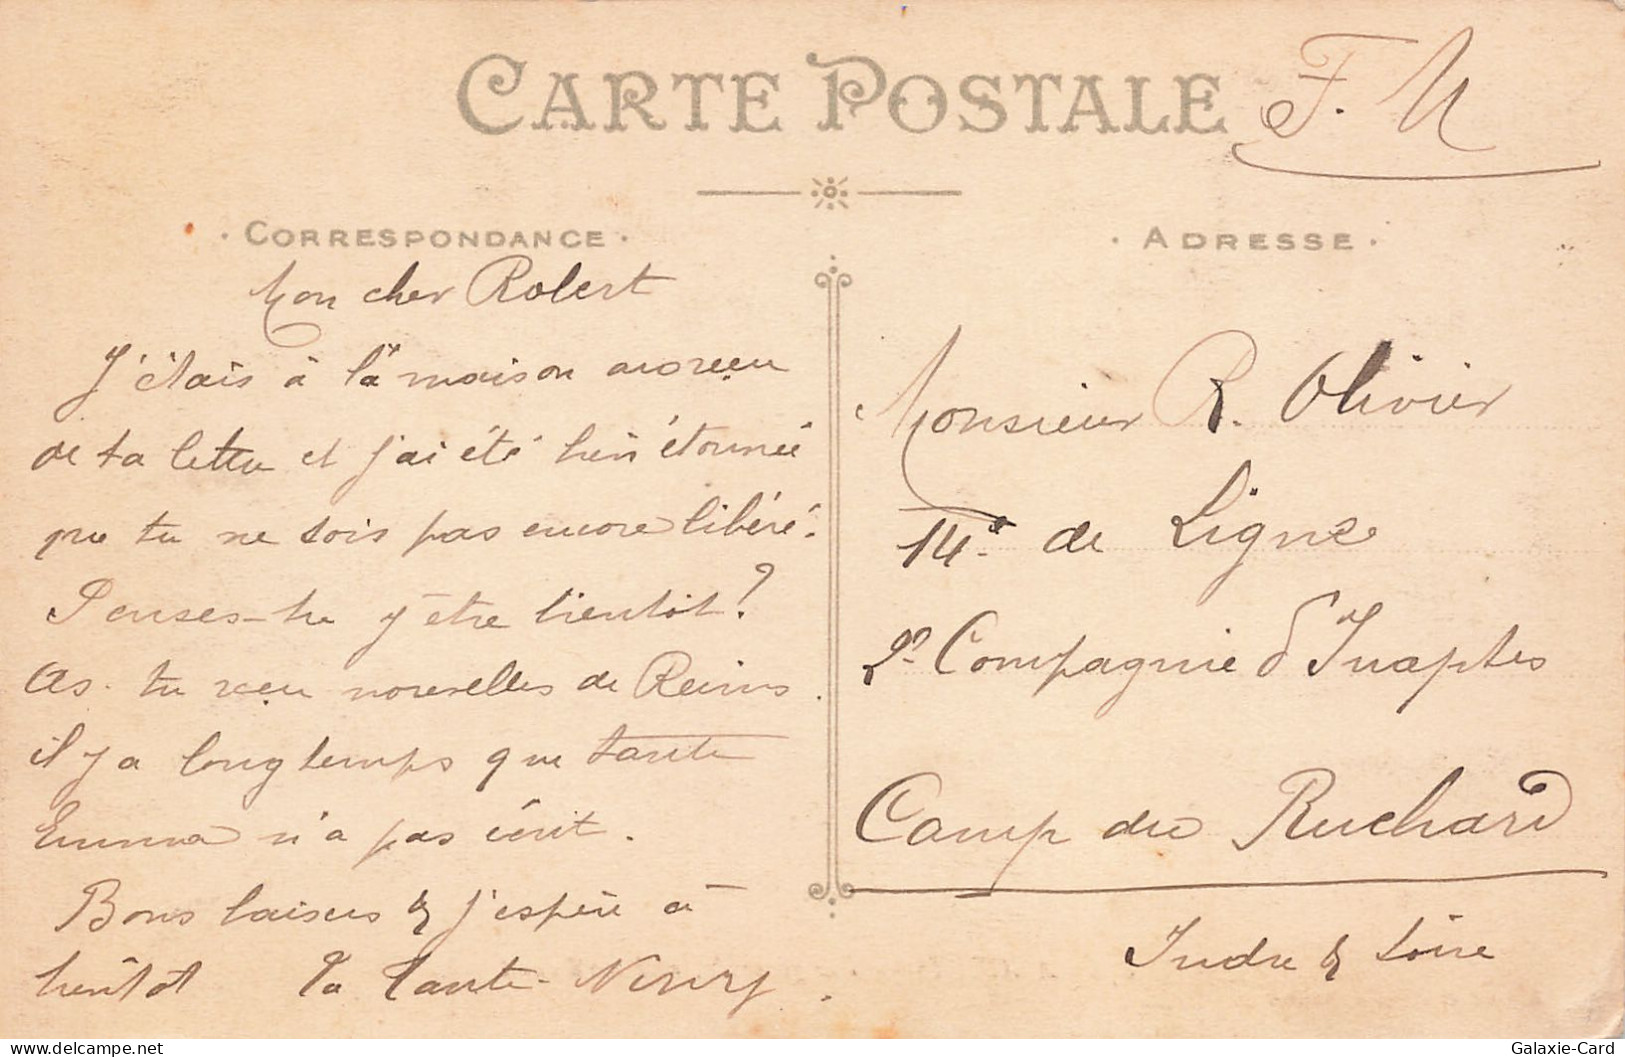 CARTE POSTALE
F. M
· CORRESPONDANCE ·
Mon cher Robert
J'étais à la maison au reçu
de ta lettre et j'ai été bien étonnée
que tu ne sois pas encore libéré.
Penses-tu y être bientôt?
As-tu reçu nouvelles de Reims.
il y a longtemps que tante
Emma n'a pas écrit.
Bons baisers & j'espère à
bientôt Ta Tante
· ADRESSE ·
Monsieur R. Olivier
14e de Ligne
2e Compagnie d'Inaptes
Camp du Ruchard
Indre & Loire
delcampe.net
Galaxie-Card